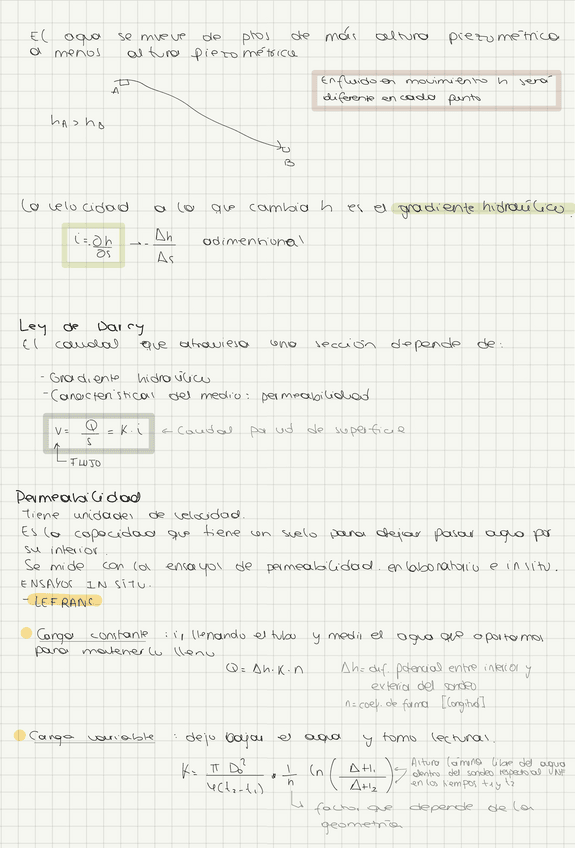 El agua se mueve de ptos de más altura piezométrica
a menos altura piezométrica
A
En fluido en movimiento h será
diferente en cada punto
hA > hB
B
La velocidad a la que cambia h es el gradiente hidraúlico.
i = ∂h/∂s → Δh/Δs adimensional
Ley de Darcy
El caudal que atraviesa una sección depende de:
- Gradiente hidraúlico
- Características del medio: permeabilidad
v = Q/s = K · i ← Caudal por ud de superficie
FLUJO
Permeabilidad
Tiene unidades de velocidad.
Es la capacidad que tiene un suelo para dejar pasar agua por
su interior.
Se mide con los ensayos de permeabilidad. en laboratorio e in situ.
ENSAYOS IN SITU.
- LEFRANC
Carga constante : ir llenando el tubo y medir el agua que aportamos
para mantenerlo lleno
Q = Δh · K · n
Δh = dif. potencial entre interior y
exterior del sondeo
n = coef. de forma [Longitud]
Carga variable : dejo bajar el agua y tomo lecturas.
K = π D₀²/4(t₂-t₁) · 1/n ln (Δt₁/Δt₂)
Altura lámina libre del agua
dentro del sondeo respecto al UNF
en los tiempos t1 y t2
factor que depende de la
geometría